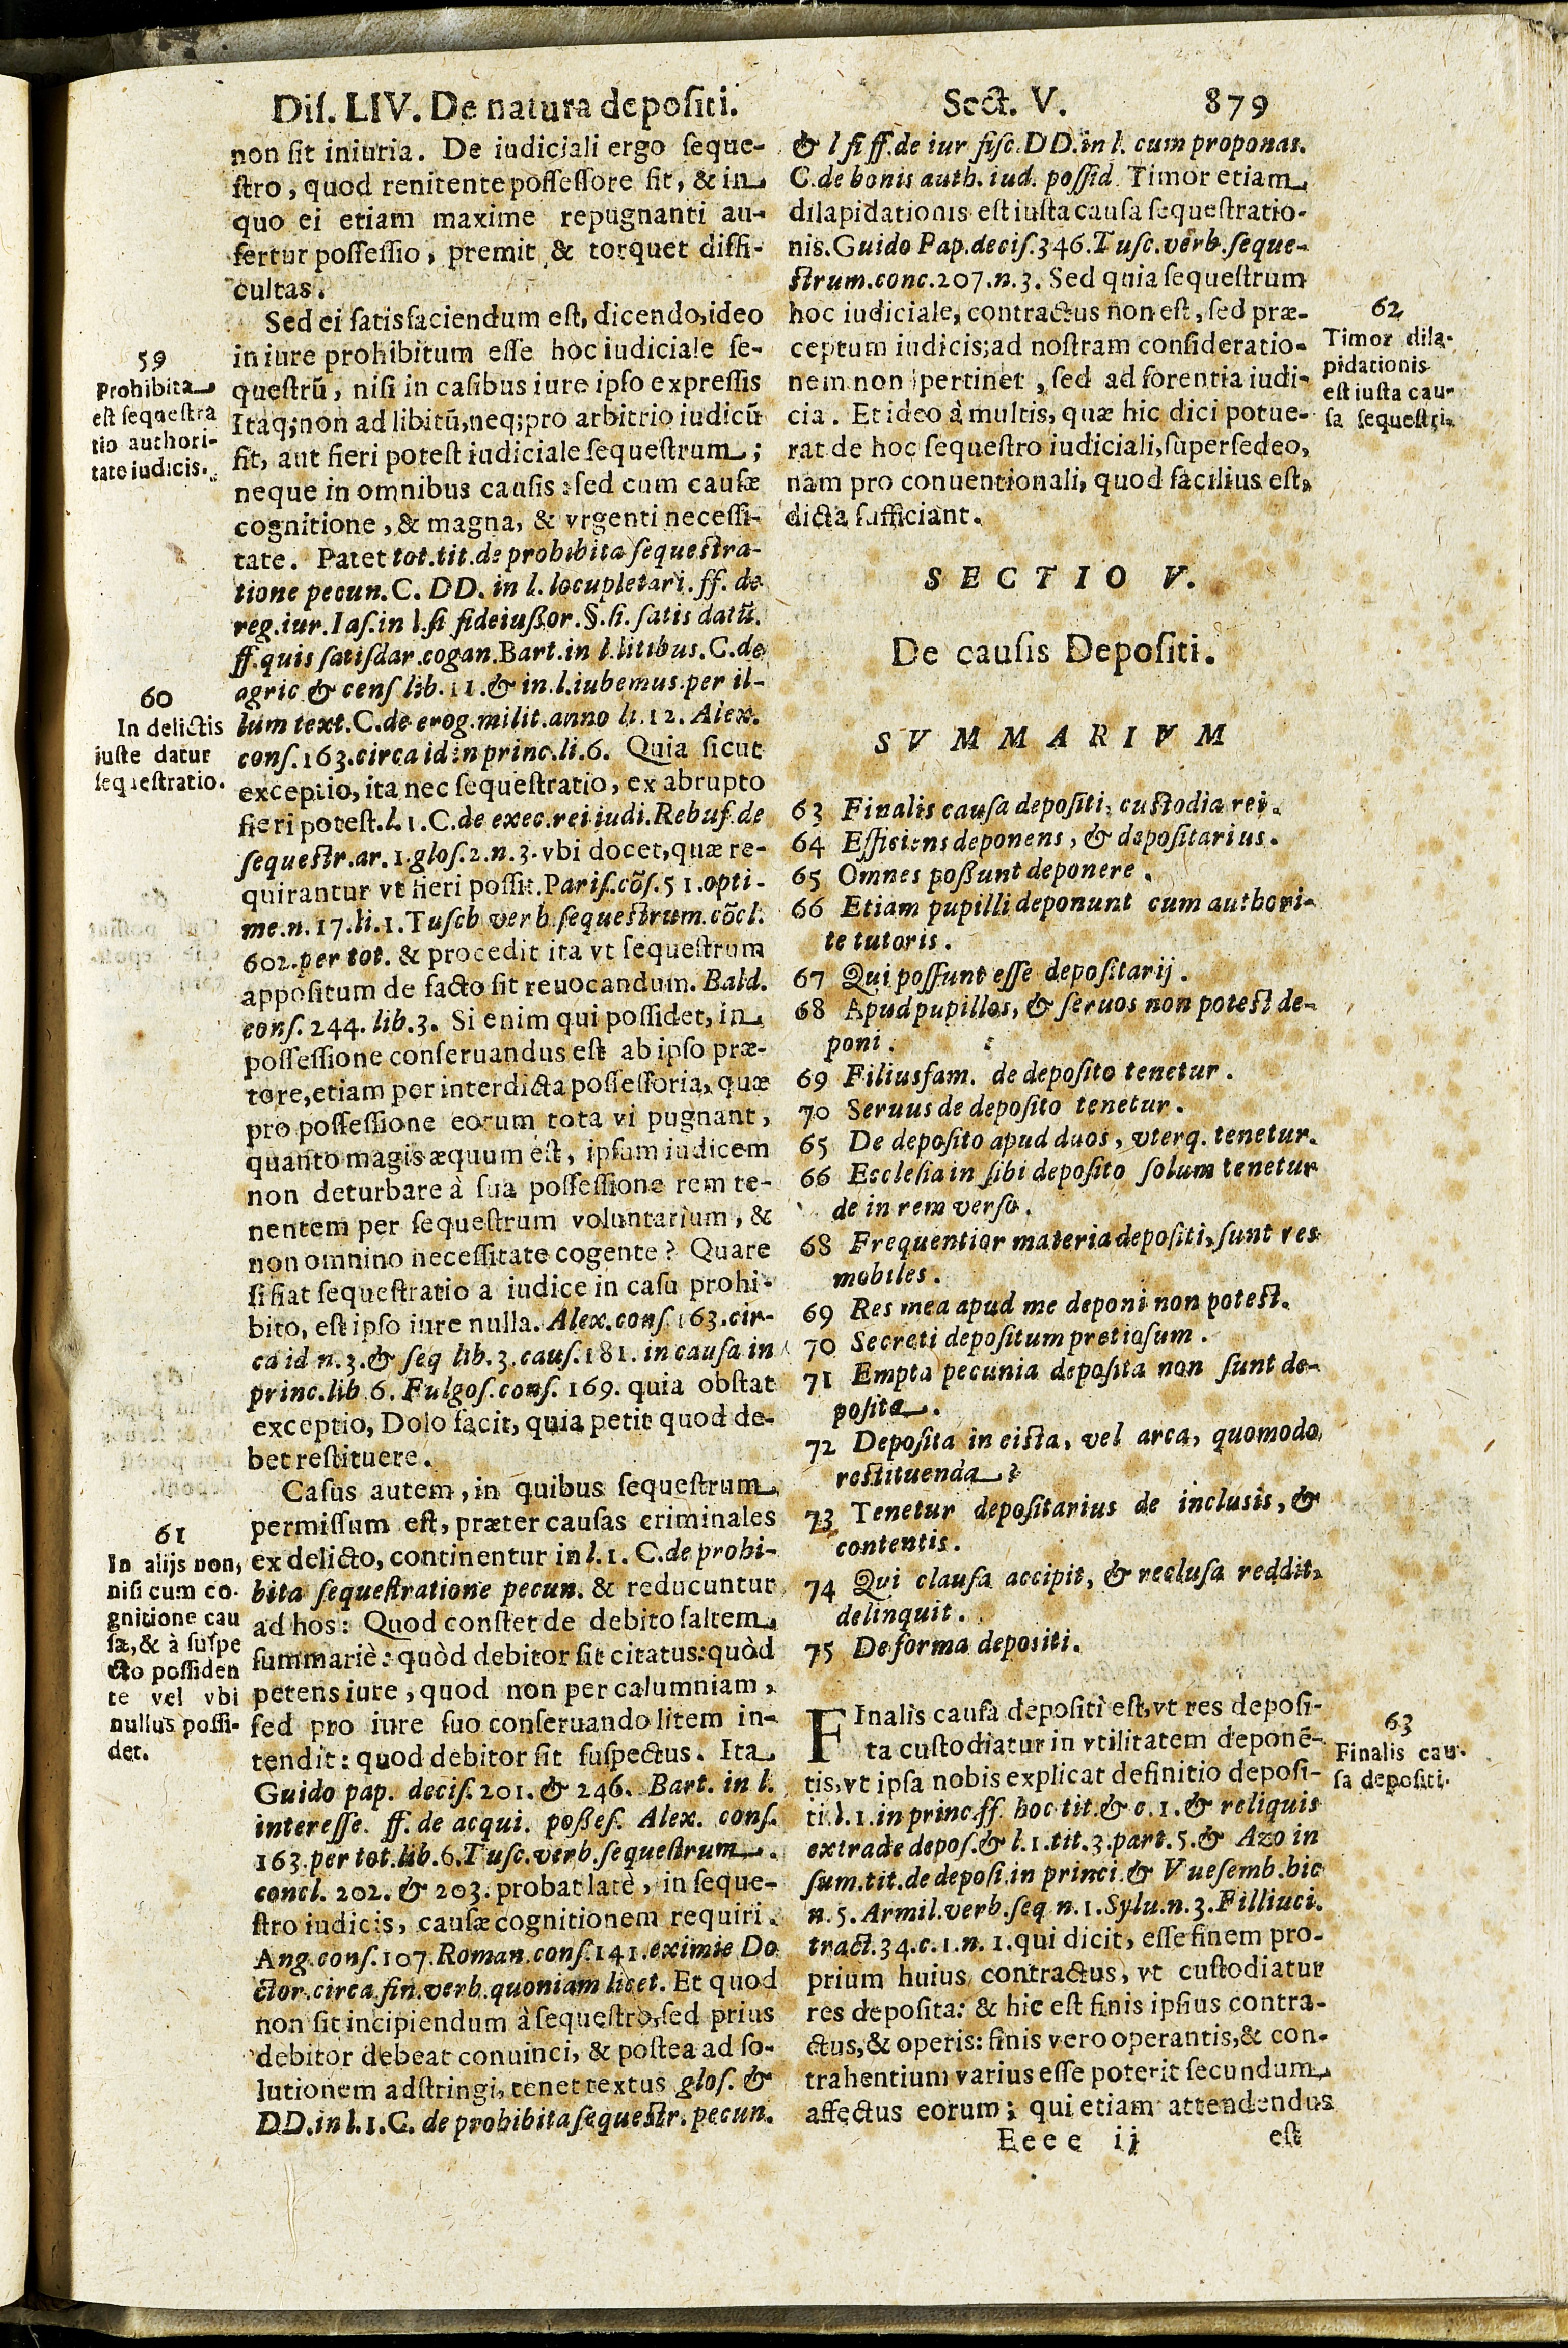 Dis. LIV. De natura depositi.
Sect. V. 879
non sit iniuria. De iudiciali ergo seque-
stro, quod renitente possessore fit, & in
quo ei etiam maxime repugnanti au-
fertur possessio, premit & torquet diffi-
cultas.
Sed ei satisfaciendum est, dicendo, ideo
in iure prohibitum esse hoc iudiciale se-
questrũ, nisi in casibus iure ipso expressis
Itaq; non ad libitũ, neq; pro arbitrio iudicũ
fit, aut fieri potest iudiciale sequestrum;
neque in omnibus causis: sed cum causæ
cognitione, & magna, & vrgenti necessi-
tate. Patet tot. tit. de prohibita sequestra-
tione pecun. C. DD. in l. locupletari. ff. de
reg. iur. Ias. in l. si fideiussor. §. si satis datũ.
ff. quis satisdar. cogan. Bart. in l. litibus. C. de
agric & cens lib. 11. & in. l. iubemus. per il-
lum text. C. de erog. milit. anno li. 12. Alex.
cons. 163. circa id in princ. li. 6. Quia sicut
exceptio, ita nec sequestratio, ex abrupto
fieri potest. l. 1. C. de exec. rei iudi. Rebuf. de
sequestr. ar. 1. glos. 2. n. 3. vbi docet, quæ re-
quirantur vt fieri possit. Paris. cõs. 51. opti-
me. n. 17. li. 1. Tusch verb. sequestrum. cõcl.
602. per tot. & procedit ita vt sequestrum
appositum de facto sit reuocandum. Bald.
cons. 244. lib. 3. Si enim qui possidet, in
possessione conseruandus est ab ipso præ-
tore, etiam per interdicta possessoria, quæ
pro possessione eorum tota vi pugnant,
quanto magis æquum est, ipsum iudicem
non deturbare à sua possessione rem te-
nentem per sequestrum voluntarium, &
non omnino necessitate cogente? Quare
si fiat sequestratio a iudice in casu prohi-
bito, est ipso iure nulla. Alex. cons. 163. cir-
ca id n. 3. & seq lib. 3. caus. 181. in causa in
princ. lib 6. Fulgos. cons. 169. quia obstat
exceptio, Dolo facit, quia petit quod de-
bet restituere.
Casus autem, in quibus sequestrum
permissum est, præter causas criminales
ex delicto, continentur in l. 1. C. de prohi-
bita sequestratione pecun. & reducuntur
ad hos: Quod constet de debito saltem
summariè: quòd debitor sit citatus: quòd
petens iure, quod non per calumniam,
sed pro iure suo conseruando litem in-
tendit: quod debitor sit suspectus. Ita
Guido pap. decis. 201. & 246. Bart. in l.
interesse. ff. de acqui. posses. Alex. cons.
163. per tot. lib. 6. Tusc. verb. sequestrum.
concl. 202. & 203. probat latè, in seque-
stro iudicis, causæ cognitionem requiri.
Ang. cons. 107. Roman. cons. 141. eximie Do
ctor. circa fin. verb. quoniam licet. Et quod
non sit incipiendum à sequestro, sed prius
debitor debeat conuinci, & postea ad so-
lutionem adstringi, tenet textus glos. &
DD. in l. 1. C. de prohibita sequestr. pecun.
59
Prohibita
est sequestra
tio authori-
tate iudicis.
60
In delictis
iuste datur
sequestratio.
61
In alijs non,
nisi cum co-
gnitione cau
sæ, & à suspe
cto possiden
te vel vbi
nullus possi-
det.
& l si ff. de iur fisc. DD. in l. cum proponas.
C. de bonis auth. iud. possid Timor etiam
dilapidationis est iusta causa sequestratio-
nis. Guido Pap. decis. 346. Tusc. verb. seque-
strum. conc. 207. n. 3. Sed quia sequestrum
hoc iudiciale, contractus non est, sed præ-
ceptum iudicis; ad nostram consideratio-
nem non pertinet, sed ad forentia iudi-
cia. Et ideo à multis, quæ hic dici potue-
rat de hoc sequestro iudiciali, supersedeo,
nam pro conuentionali, quod facilius est,
dicta sufficiant.
62
Timor dila-
pidationis
est iusta cau-
sa sequestri.
SECTIO V.
De causis Depositi.
SVMMARIVM
63 Finalis causa depositi, custodia rei.
64 Efficiens deponens, & depositarius.
65 Omnes possunt deponere.
66 Etiam pupilli deponunt cum authori-
te tutoris.
67 Qui possunt esse depositarij.
68 Apud pupillos, & seruos non potest de-
poni.
69 Filiusfam. de deposito tenetur.
70 Seruus de deposito tenetur.
65 De deposito apud duos, vterq. tenetur.
66 Ecclesia in sibi deposito solum tenetur
de in rem verso.
68 Frequentior materia depositi, sunt res
mobiles.
69 Res mea apud me deponi non potest.
70 Secreti depositum pretiosum.
71 Empta pecunia deposita non sunt de-
posita.
72 Deposita in cista, vel arca, quomodo
restituenda?
73 Tenetur depositarius de inclusis, &
contentis.
74 Qui clausa accipit, & reclusa reddit,
delinquit.
75 De forma depositi.
FInalis causa depositi est, vt res deposi-
ta custodiatur in vtilitatem deponẽ-
tis, vt ipsa nobis explicat definitio deposi-
ti. l. 1. in princ. ff. hoc tit. & c. 1. & reliquis
extra de depos. & l. 1. tit. 3. part. 5. & Azo in
sum. tit. de deposi. in princi. & Vuesemb. hic
n. 5. Armil. verb. seq n. 1. Sylu. n. 3. Filliuci.
tract. 34. c. 1. n. 1. qui dicit, esse finem pro-
prium huius contractus, vt custodiatur
res deposita: & hic est finis ipsius contra-
ctus, & operis: finis vero operantis, & con-
trahentium varius esse poterit secundum
affectus eorum; qui etiam attendendus
63
Finalis cau-
sa depositi.
Eeee ij est